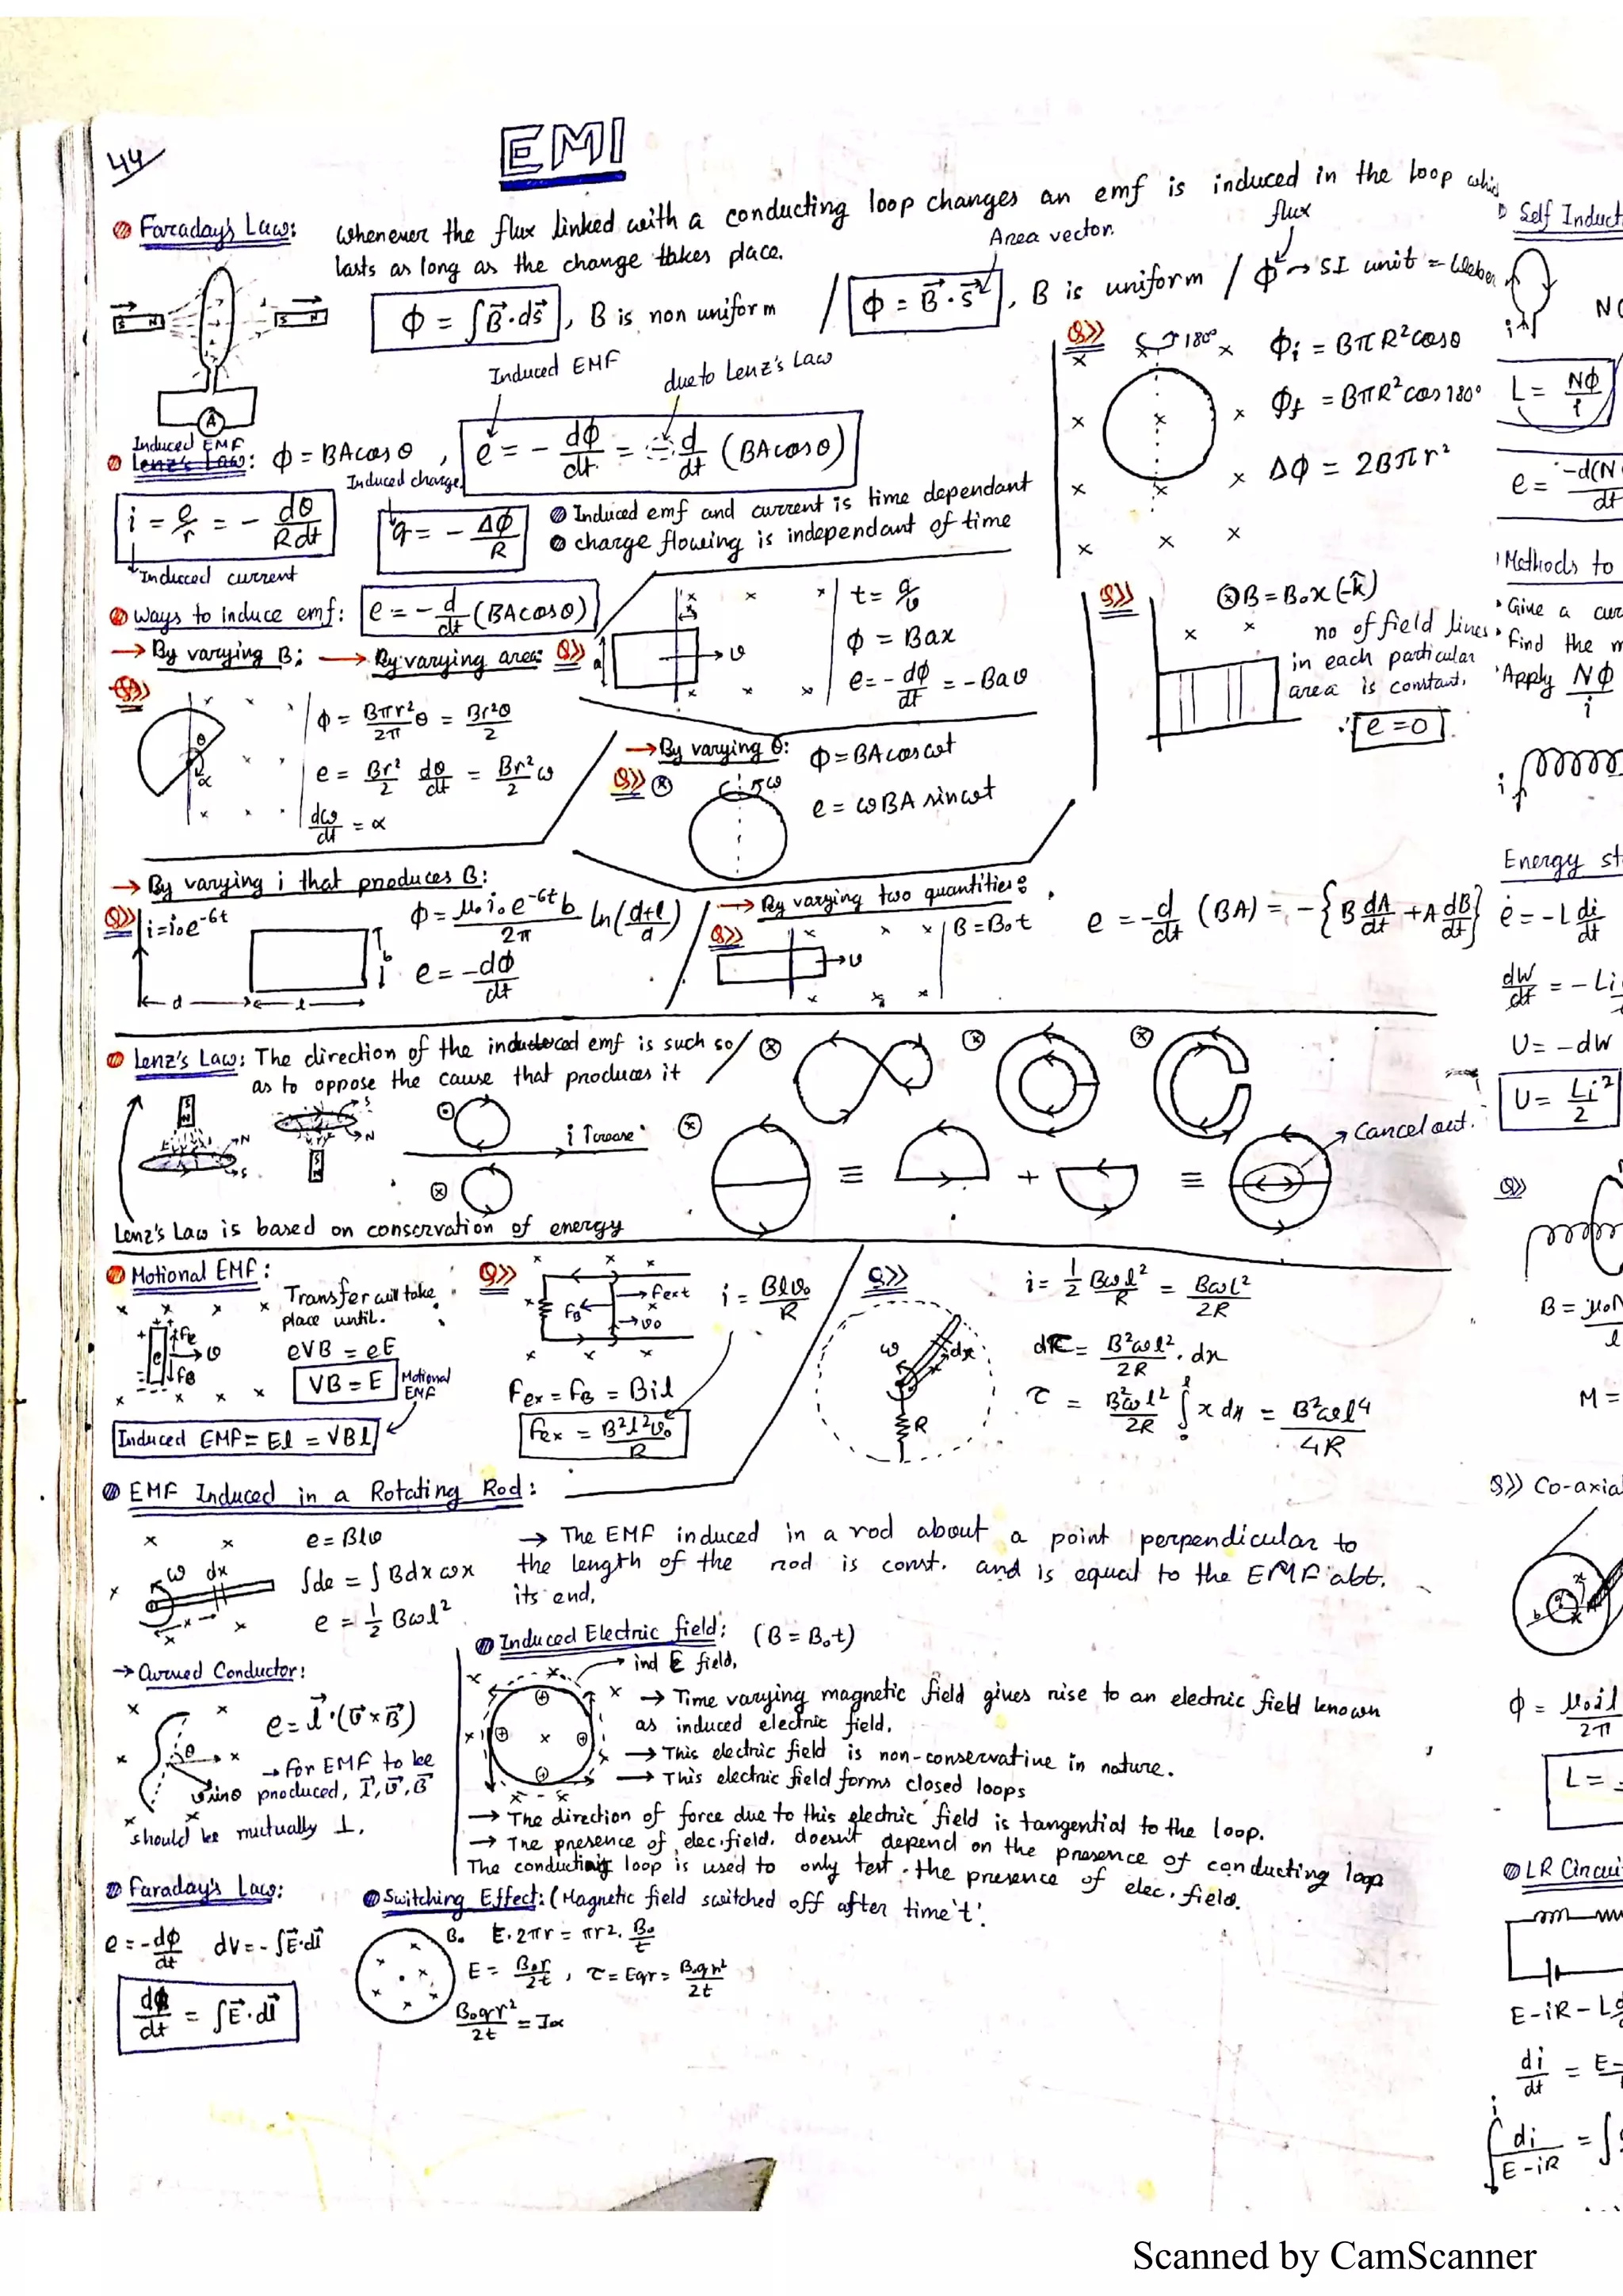 44
EMI
Faraday's Law: Whenever the flux linked with a conducting loop changes an emf is induced in the loop whic
lasts as long as the change takes place.
Area vector.
flux
ϕ = ∫B⃗·ds⃗ , B is non uniform / ϕ = B⃗·s⃗ , B is uniform / ϕ → SI unit = Weber
A
Induced EMF
due to Lenz's Law
Induced EMF
Lenz's Law: ϕ = BAcosθ , e = - dϕ/dt = - d/dt (BAcosθ)
Induced charge
i = e/r = - dθ/Rdt
Induced current
q = - Δϕ/R
Induced emf and current is time dependant
charge flowing is independant of time
Q>> 180°
ϕi = BπR²cosθ
ϕf = BπR²cos180°
Δϕ = 2Bπr²
Ways to induce emf: e = - d/dt (BAcosθ)
→ By varying B: → By varying area: Q>>
t = a/v
ϕ = Bax
e = - dϕ/dt = -Bav
Q>> ⊗B = B₀x(-k̂)
no of field lines
in each particular
area is constant.
∴ e = 0
Q>>
ϕ = Bπr²/2π θ = Br²θ/2
e = Br²/2 dθ/dt = Br²/2 ω
dω/dt = α
→ By varying θ: ϕ = BAcosωt
Q>> ⊗ ω
e = ωBA sinωt
→ By varying i that produces B:
Q>> i = i₀e⁻⁶ᵗ
ϕ = μ₀i₀e⁻⁶ᵗb/2π ln(d+l/d)
e = -dϕ/dt
d l b
→ By varying two quantities:
Q>> v B = B₀t
e = -d/dt (BA) = -{B dA/dt + A dB/dt}
Lenz's Law: The direction of the induced emf is such so
as to oppose the cause that produces it
i
≡ + ≡ Cancel out.
Lenz's Law is based on conservation of energy
Motional EMF:
Transfer will take
place until.
eVB = eE
VB = E Motional EMF
Induced EMF = El = VBl
Q>> FB Fext v₀ i = Blv₀/R
Fex = FB = Bil
Fex = B²l²v₀/R
Q>> ω dx R
i = 1/2 Bωl²/R = Bωl²/2R
dτ = B²ωl²/2R . dx
τ = B²ωl²/2R ∫₀ˡ x dx = B²ωl⁴/4R
EMF Induced in a Rotating Rod:
e = Blv
∫de = ∫Bdx ωx
e = 1/2 Bωl²
ω dx x
→ The EMF induced in a rod about a point perpendicular to
the length of the rod is const. and is equal to the EMF abt.
its end.
→ Curved Conductor:
e = l⃗·(v⃗×B⃗)
→ for EMF to be
produced, l⃗, v⃗, B⃗
should be mutually ⊥.
Induced Electric field: (B = B₀t)
ind E field.
→ Time varying magnetic field gives rise to an electric field known
as induced electric field.
→ This electric field is non-conservative in nature.
→ This electric field forms closed loops
→ The direction of force due to this electric field is tangential to the loop.
→ The presence of elec.field. doesn't depend on the presence of conducting loop
The conducting loop is used to only test the presence of elec. field.
Faraday's Law:
e = -dϕ/dt dV = -∫E⃗·dl⃗
dϕ/dt = ∫E⃗·dl⃗
Switching Effect: (Magnetic field switched off after time 't'.
B₀ E·2πr = πr². B₀/t
E = B₀r/2t , τ = Eqr = B₀qr²/2t
B₀qr²/2t = Iα
Self Induct
i
L = Nϕ/i
e = -d(N/dt
Methods to
Give a cur
Find the m
Apply Nϕ/i
i
Energy st
e = -L di/dt
dW/dt = -Li
U = -dW
U = Li²/2
Q>>
B = μ₀N/l
M =
Q>> Co-axial
ϕ = μ₀il/2π
L =
LR Circui
E-iR-L
di/dt = E-
∫ di/E-iR = ∫
Scanned by CamScanner